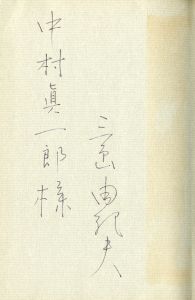 中村真一郎様
三島由紀夫